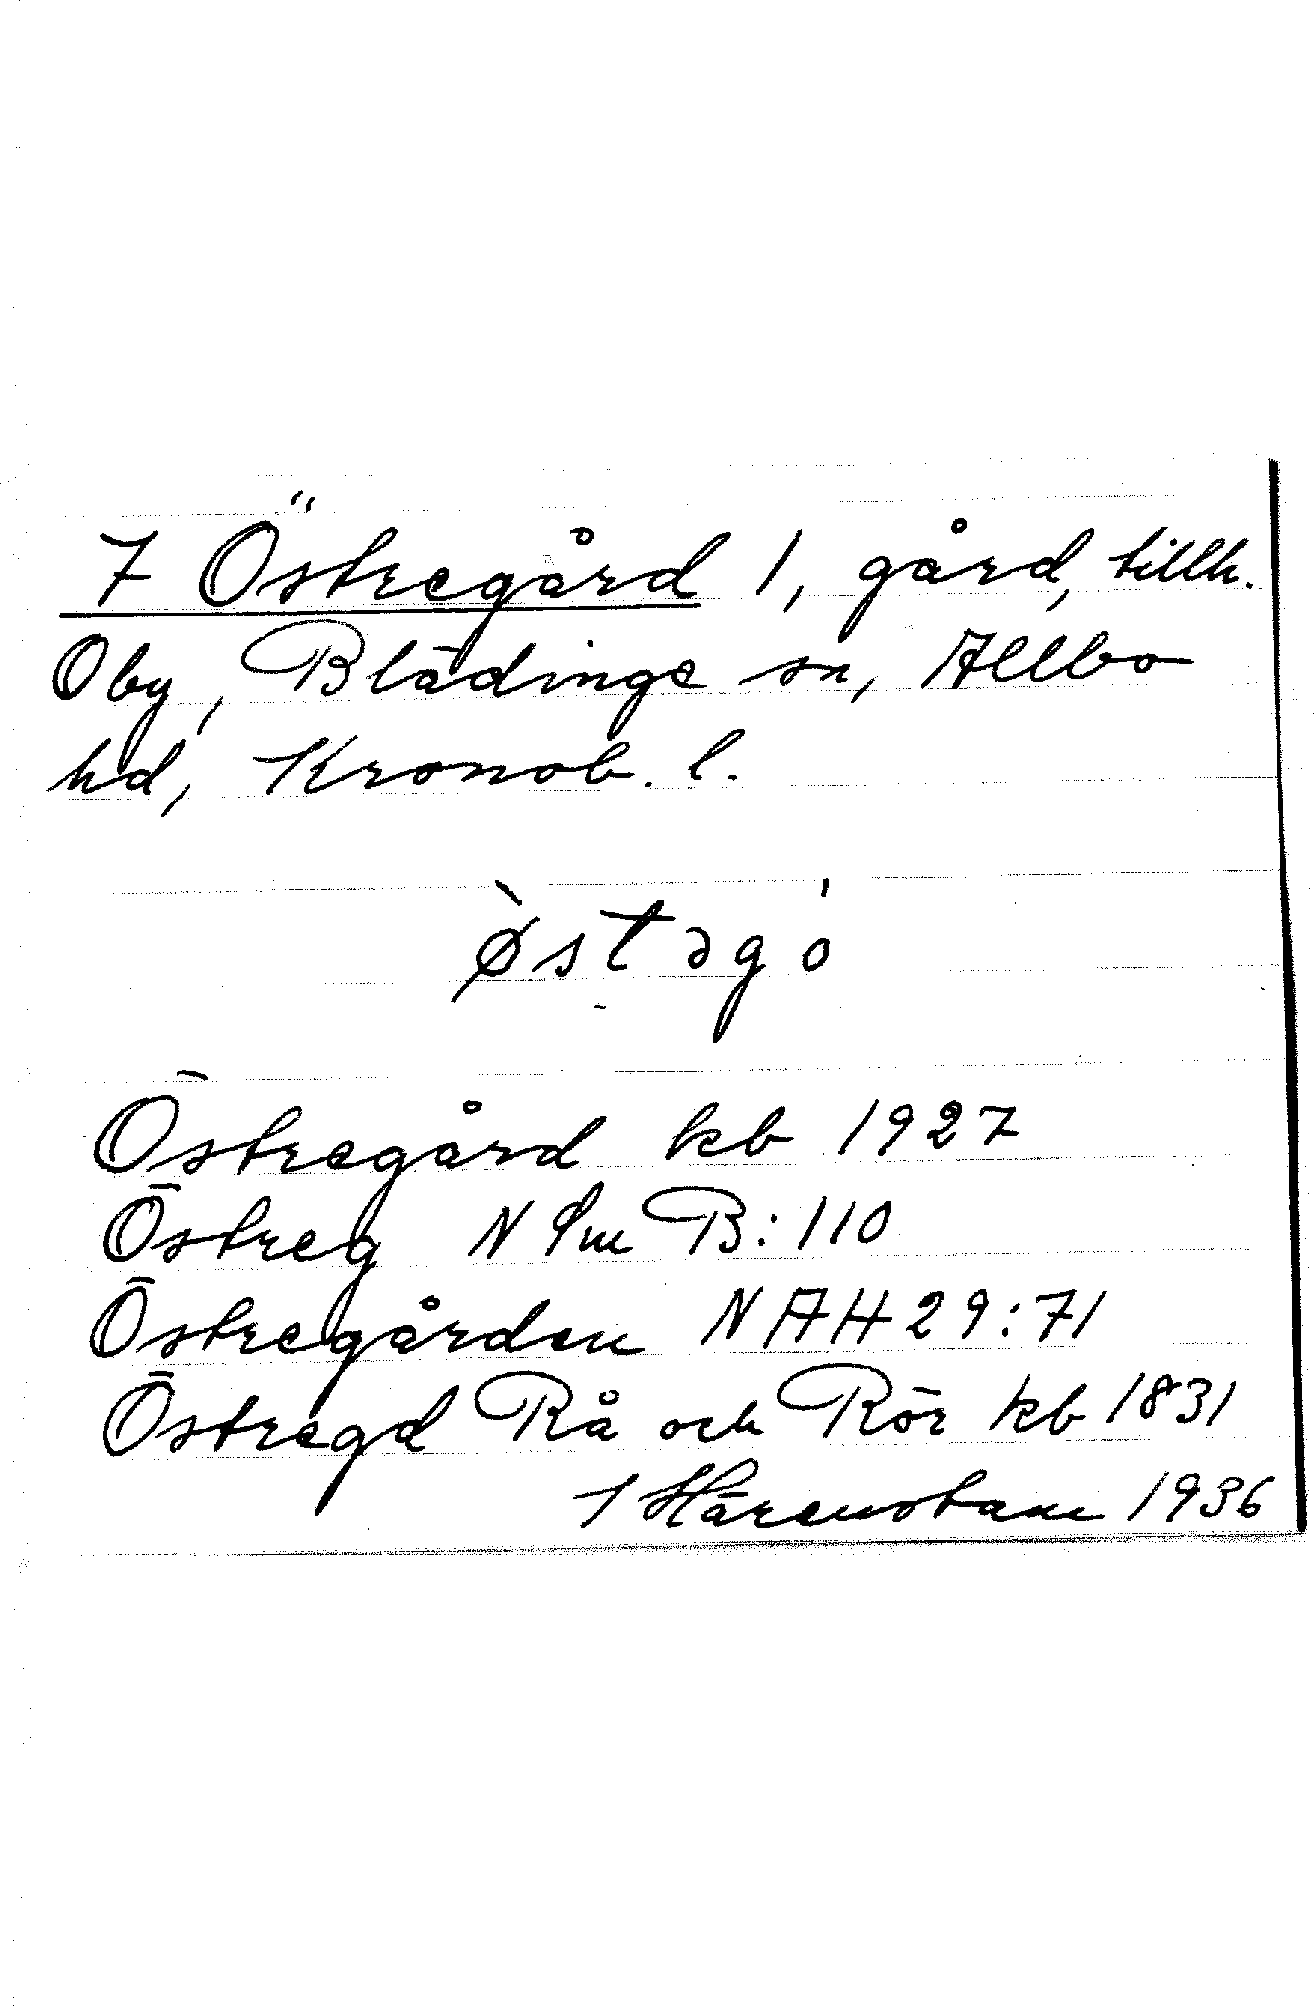 7 Östregård 1, gård, tillh.
Oby, Blädinge sn, Allbo
hd, Kronob. l.
ø̀stəgó
Östregård kb 1927
Östreg N Sm B:110
Östregården NAH29:71
Östregd Rå och Rör kb 1831
J Härenstam 1936